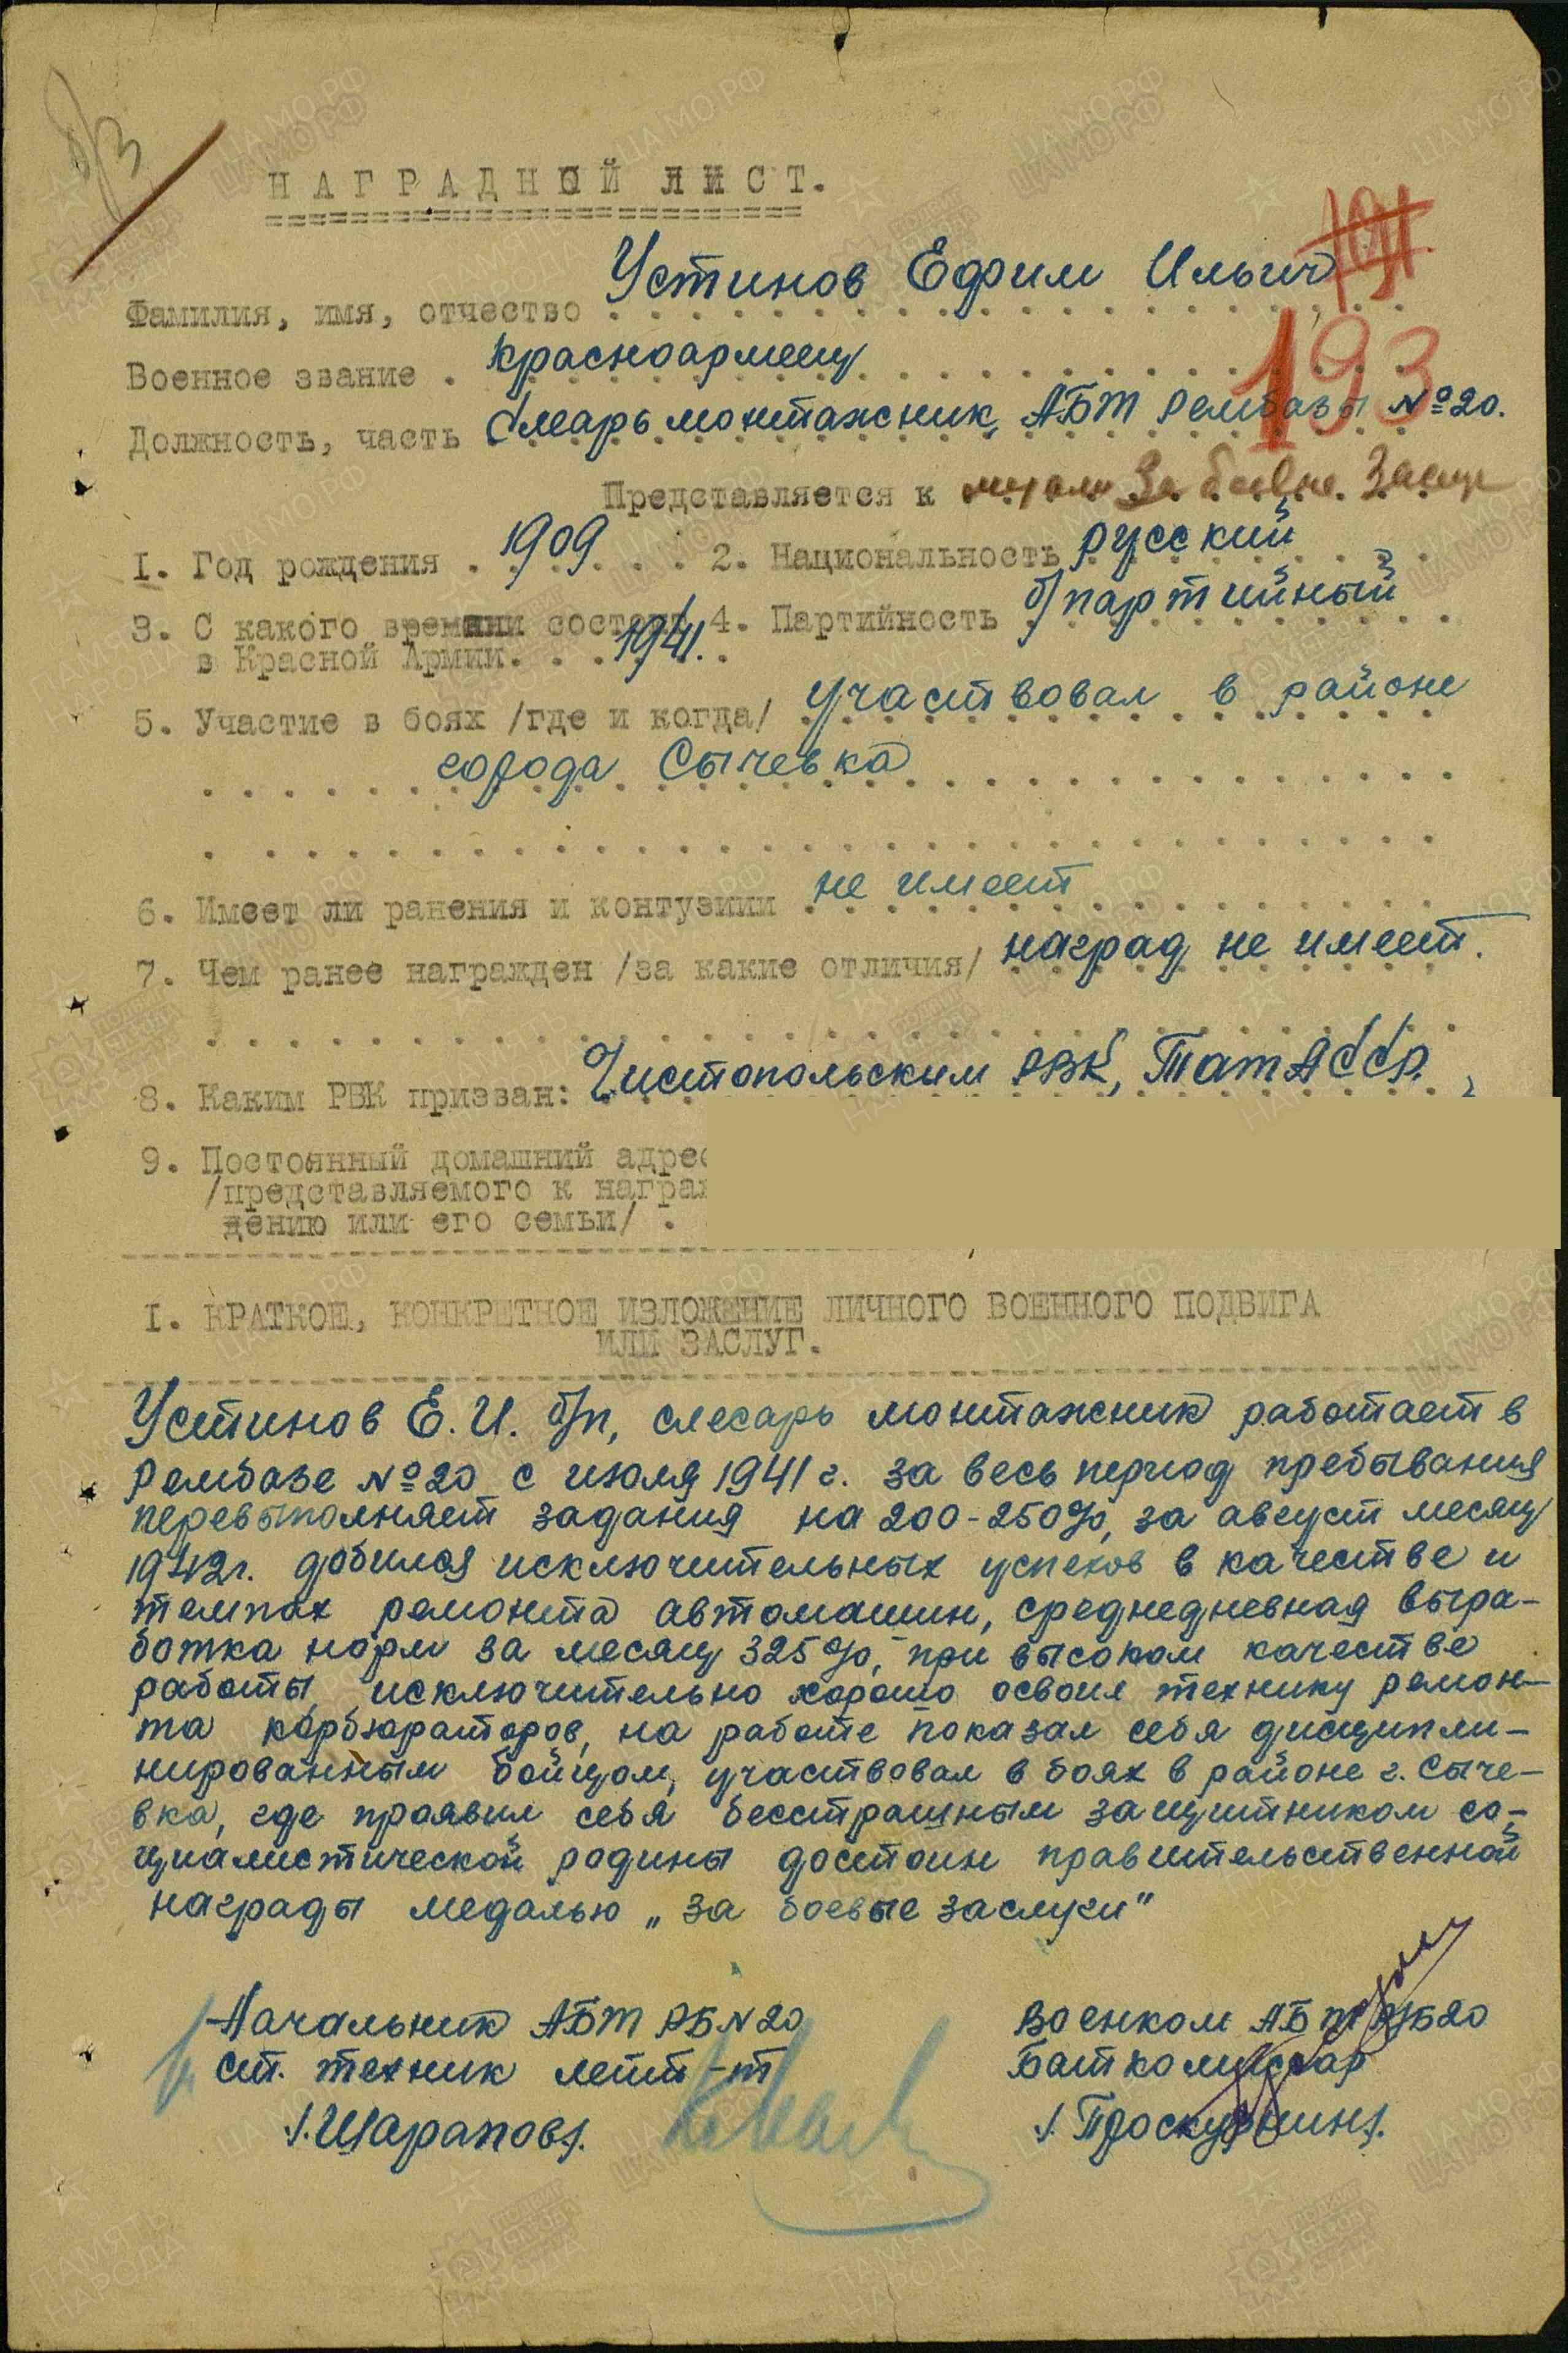 НАГРАДНОЙ ЛИСТ.
191
193
Фамилия, имя, отчество Устинов Ефим Ильич
Военное звание . красноармеец
Должность, часть Слесарь монтажник, АБТ Рембазы №20.
Представляется к медали За боевые заслуг
1. Год рождения . 1909 2. Национальность русский
3. С какого времени состоит 4. Партийность б/партийный
в Красной Армии. 1941.
5. Участие в боях /где и когда/ участвовал в районе
города Сычевка
6. Имеет ли ранения и контузиии не имеет
7. Чем ранее награжден /за какие отличия/ наград не имеет.
8. Каким РВК призван: Чистопольским РВК, ТатАССР.
9. Постоянный домашний адрес
/представляемого к награж
дению или его семьи/ .
I. КРАТКОЕ, КОНКРЕТНОЕ ИЗЛОЖЕНИЕ ЛИЧНОГО ВОЕННОГО ПОДВИГА
ИЛИ ЗАСЛУГ.
Устинов Е.И. б/п, слесарь монтажник работает в
Рембазе №20 с июля 1941 г. за весь период пребывания
перевыполняет задания на 200-250%, за август месяц
1942г. добился исключительных успехов в качестве и
темпах ремонта автомашин, среднедневная выра-
ботка норм за месяц 325%, при высоком качестве
работы, исключительно хорошо освоил технику ремон-
та карбюраторов, на работе показал себя дисципли-
нированным бойцом, участвовал в боях в районе г. Сыче-
вка, где проявил себя бесстрашным защитником со-
циалистической родины достоин правительственной
награды медалью „за боевые заслуги"
Начальник АБТ РБ№20
ст. техник лейт-т
/.Шарапов/.
Военком АБТ РБ20
Бат комиссар
/.Проскурнин/.